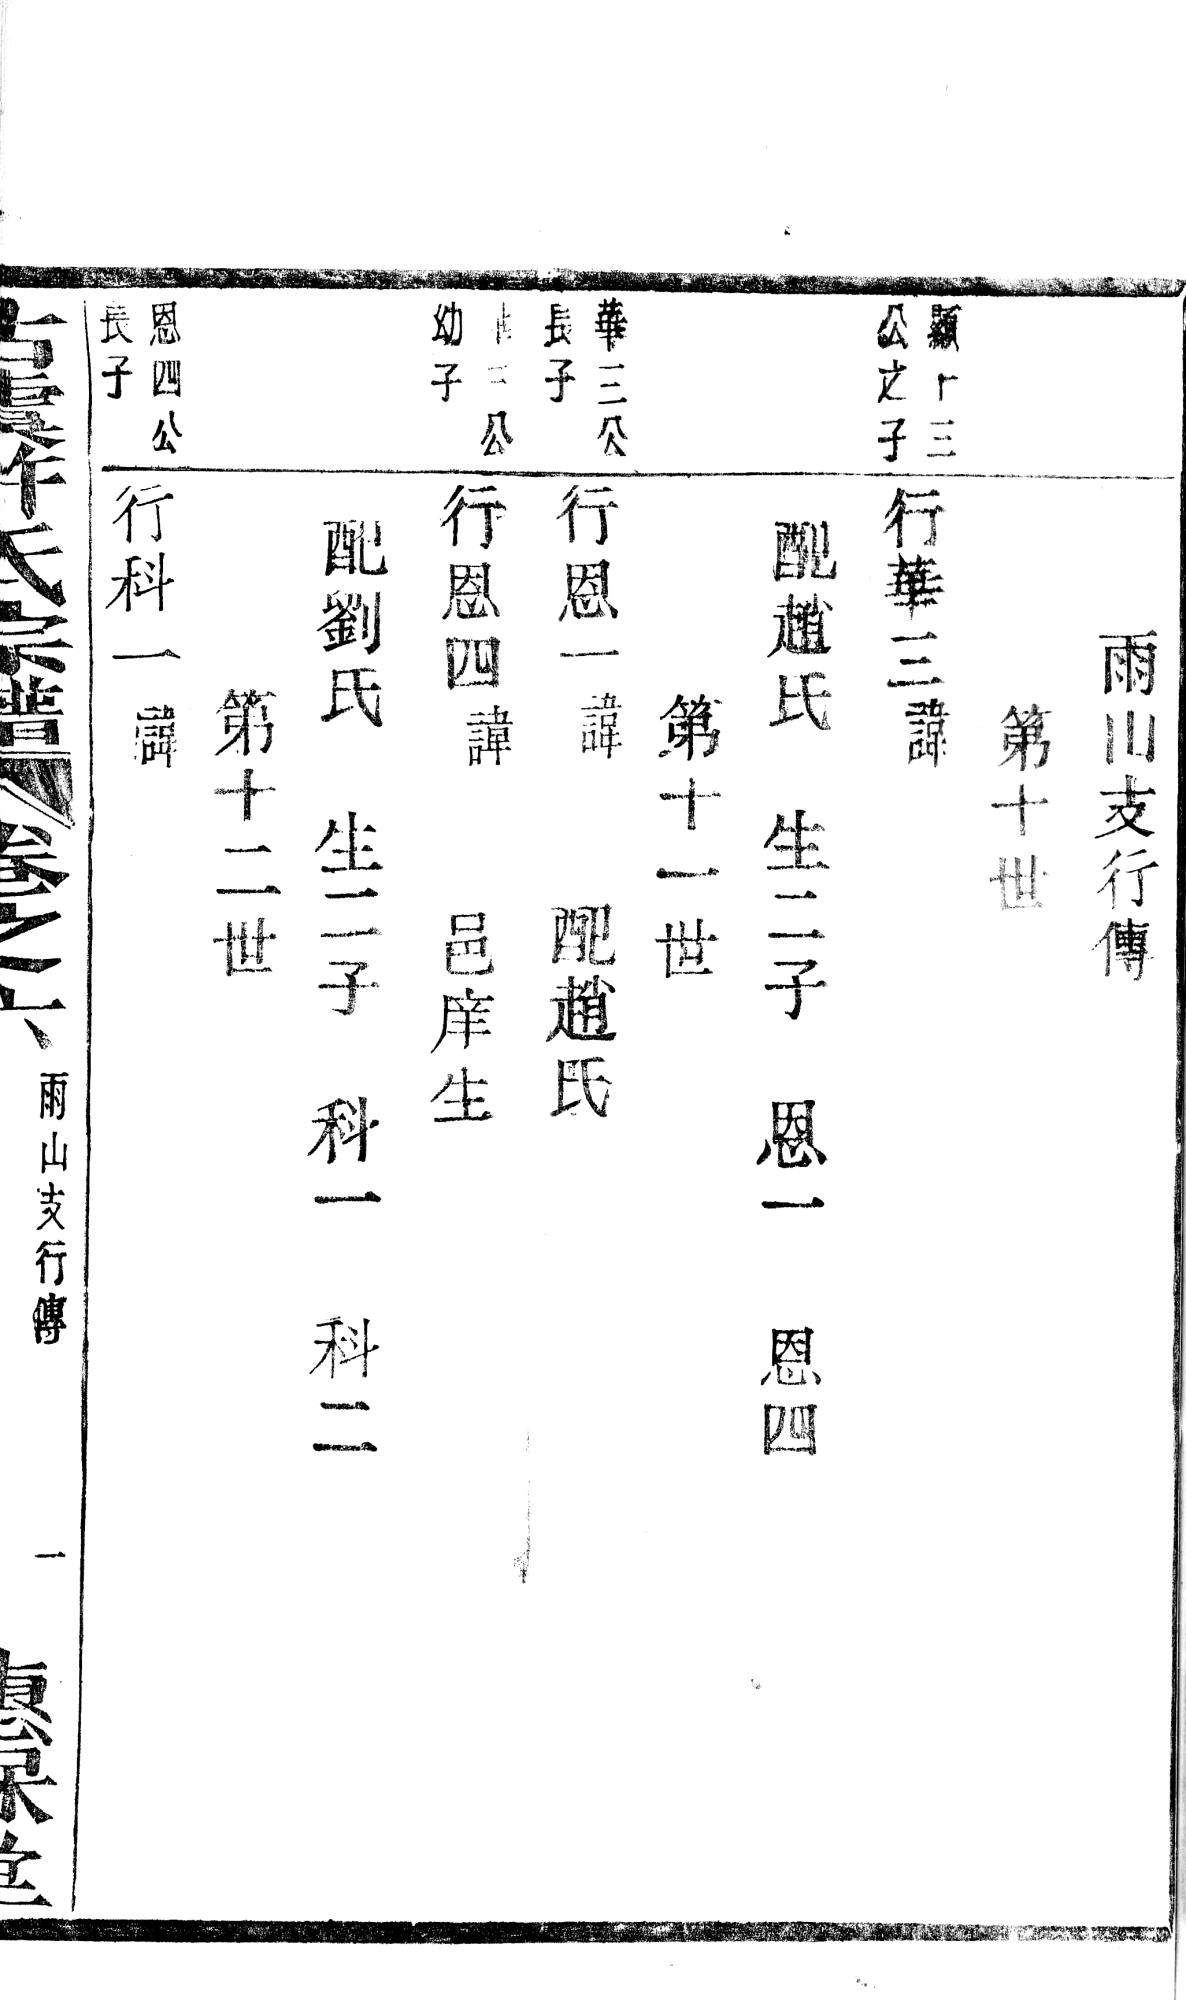 雨山支行傳
第十世
顯十三
公之子
行華三諱
配趙氏　生二子　恩一　恩四
第十一世
華三公
長子
行恩一諱　配趙氏
三公
幼子
行恩四諱　邑庠生
配劉氏　生二子　科一　科二
第十二世
恩四公
長子
行科一諱
古虞許氏宗譜
卷之六
雨山支行傳
一
惠保堂